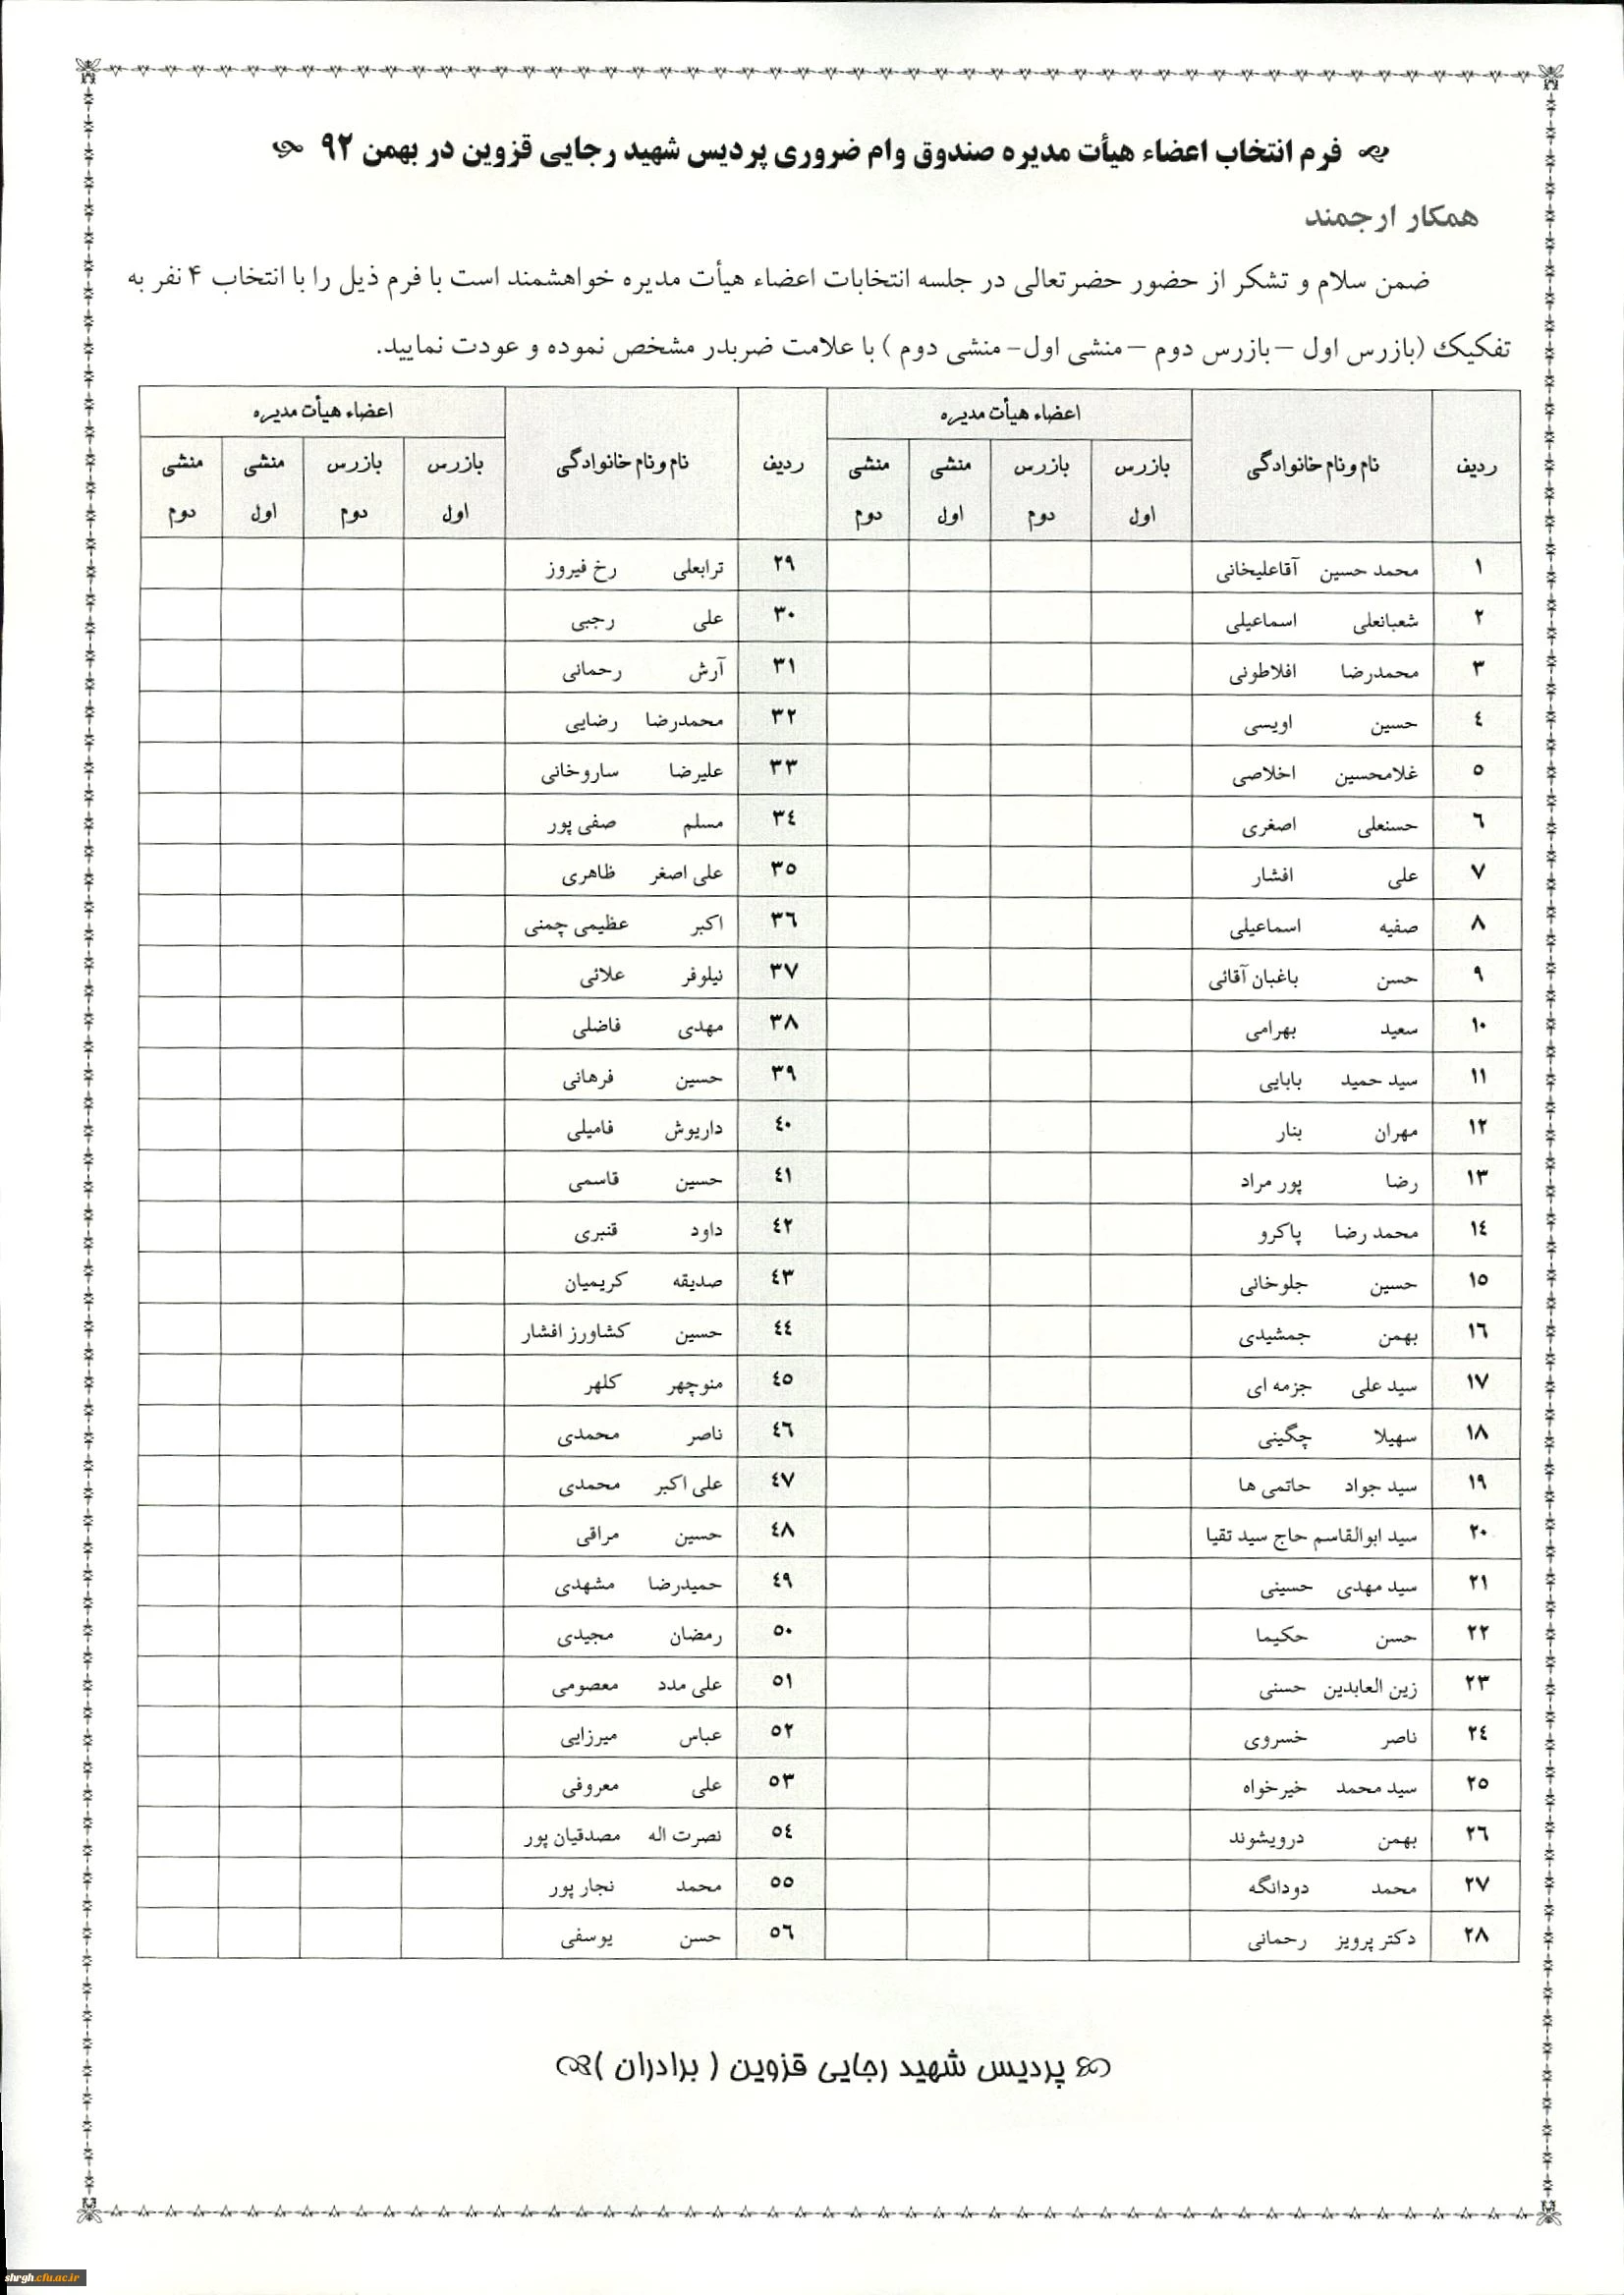 فرم انتخاب اعضاء هیأت مدیره صندوق وام ضروری پردیس شهید رجایی قزوین در بهمن ۹۲
همکار ارجمند
ضمن سلام و تشکر از حضور حضرتعالی در جلسه انتخابات اعضاء هیأت مدیره خواهشمند است با فرم ذیل را با انتخاب ۴ نفر به
تفکیک (بازرس اول – بازرس دوم – منشی اول- منشی دوم ) با علامت ضربدر مشخص نموده و عودت نمایید.
ردیف نام ونام خانوادگی اعضاء هیأت مدیره ردیف نام ونام خانوادگی اعضاء هیأت مدیره
بازرس اول بازرس دوم منشی اول منشی دوم بازرس اول بازرس دوم منشی اول منشی دوم
۱ محمد حسین آقاعلیخانی ۲۹ ترابعلی رخ فیروز
۲ شعبانعلی اسماعیلی ۳۰ علی رجبی
۳ محمدرضا افلاطونی ۳۱ آرش رحمانی
٤ حسین اویسی ۳۲ محمدرضا رضایی
٥ غلامحسین اخلاصی ۳۳ علیرضا ساروخانی
٦ حسنعلی اصغری ۳٤ مسلم صفی پور
۷ علی افشار ۳٥ علی اصغر ظاهری
۸ صفیه اسماعیلی ۳٦ اکبر عظیمی چمنی
۹ حسن باغبان آقائی ۳۷ نیلوفر علائی
۱۰ سعید بهرامی ۳۸ مهدی فاضلی
۱۱ سید حمید بابایی ۳۹ حسین فرهانی
۱۲ مهران بنار ٤۰ داریوش فامیلی
۱۳ رضا پور مراد ٤۱ حسین قاسمی
۱٤ محمد رضا پاکرو ٤۲ داود قنبری
۱٥ حسین جلوخانی ٤۳ صدیقه کریمیان
۱٦ بهمن جمشیدی ٤٤ حسین کشاورز افشار
۱۷ سید علی جزمه ای ٤٥ منوچهر کلهر
۱۸ سهیلا چگینی ٤٦ ناصر محمدی
۱۹ سید جواد حاتمی ها ٤۷ علی اکبر محمدی
۲۰ سید ابوالقاسم حاج سید تقیا ٤۸ حسین مراقی
۲۱ سید مهدی حسینی ٤۹ حمیدرضا مشهدی
۲۲ حسن حکیما ٥۰ رمضان مجیدی
۲۳ زین العابدین حسنی ٥۱ علی مدد معصومی
۲٤ ناصر خسروی ٥۲ عباس میرزایی
۲٥ سید محمد خیرخواه ٥۳ علی معروفی
۲٦ بهمن درویشوند ٥٤ نصرت اله مصدقیان پور
۲۷ محمد دودانگه ٥٥ محمد نجار پور
۲۸ دکتر پرویز رحمانی ٥٦ حسن یوسفی
پردیس شهید رجایی قزوین ( برادران )
shrgh.cfu.ac.ir